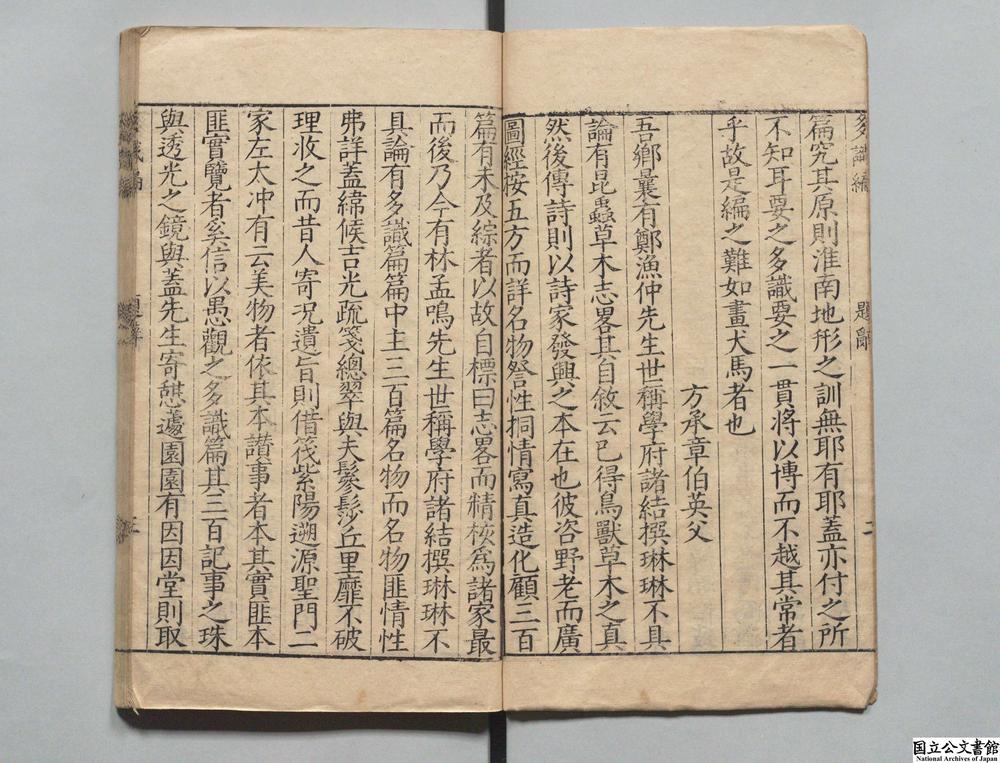 多識編
題辭
二
篇究其原則淮南地形之訓無耶有耶蓋亦付之所
不知耳要之多識要之一貫將以博而不越其常者
乎故是編之難如畫犬馬者也
方承章伯英父
吾鄉曩有鄭漁仲先生世稱學府諸結撰琳琳不具
論有昆蟲草木志畧其自敘云已得鳥獸草木之真
然後傳詩則以詩家發興之本在也彼咨野老而廣
圖經按五方而詳名物詧性挏情寫真造化顧三百
篇有未及綜者以故自標曰志畧而精核爲諸家最
而後乃今有林孟鳴先生世稱學府諸結撰琳琳不
具論有多識篇篇中主三百篇名物而名物匪情性
弗詳蓋緯候吉光疏箋總翠與夫髮髟沙丘里靡不破
理收之而昔人寄况遺旨則借筏紫陽遡源聖門二
家左太冲有云美物者依其本讚事者本其實匪本
匪實覽者奚信以愚觀之多識篇其三百記事之珠
與透光之鏡與蓋先生寄憩蘧園園有因因堂則取
題辭
三
国立公文書館
National Archives of Japan